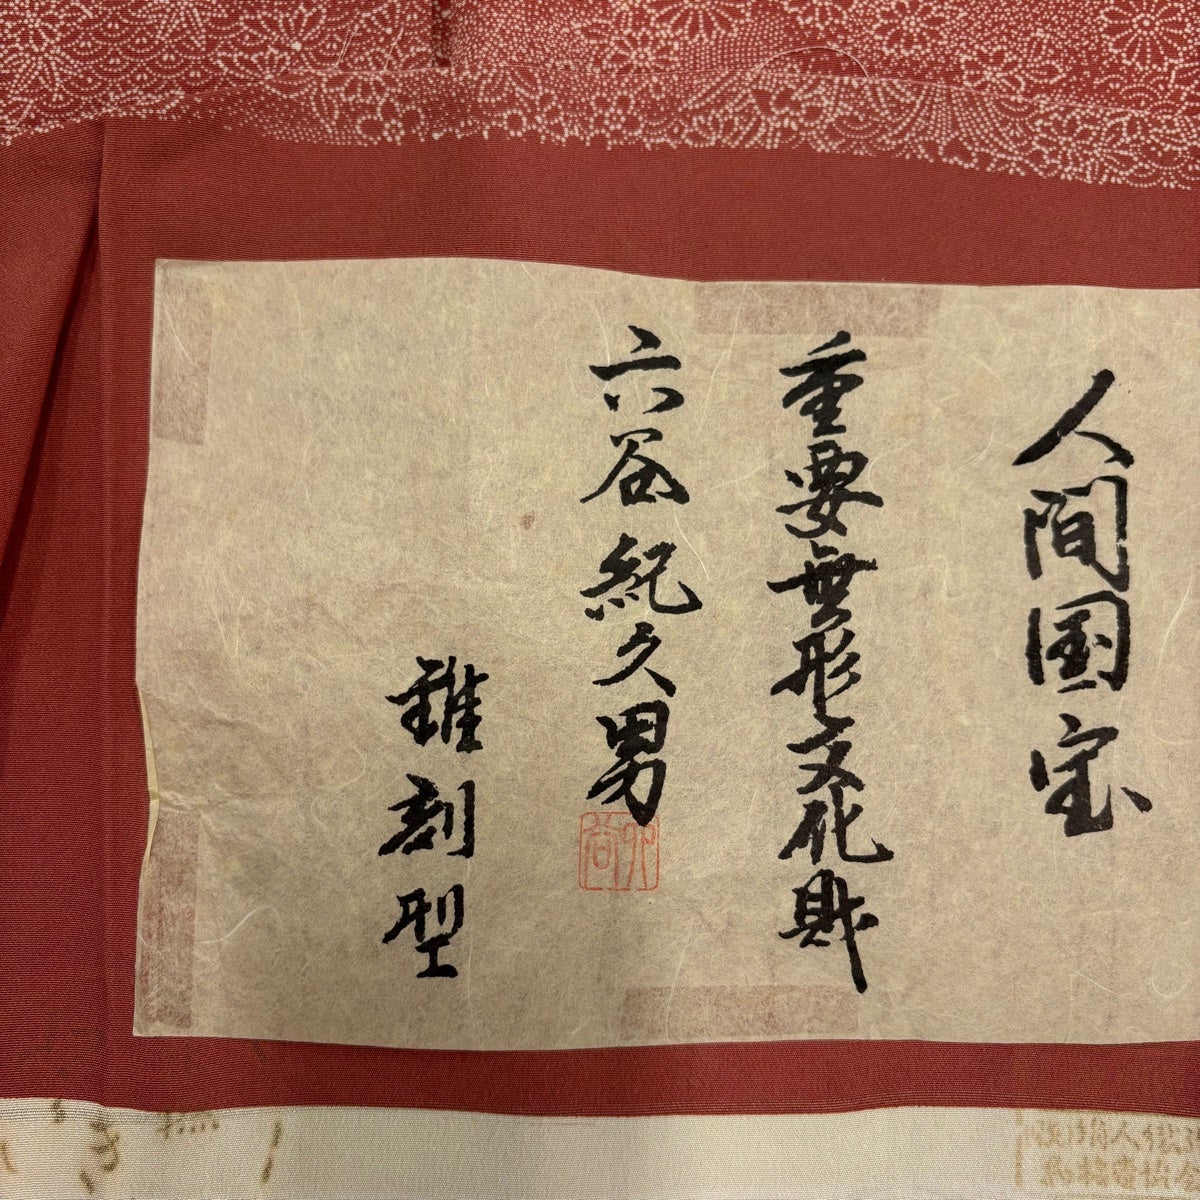 人間国宝
重要無形文化財
六谷紀久男
錐刻型